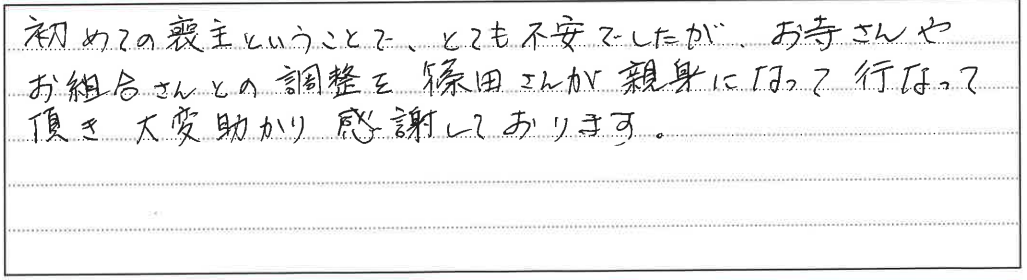 初めての喪主ということで、とても不安でしたが、お寺さんや
お組合さんとの調整を篠田さんが親身になって行なって
頂き大変助かり感謝しております。